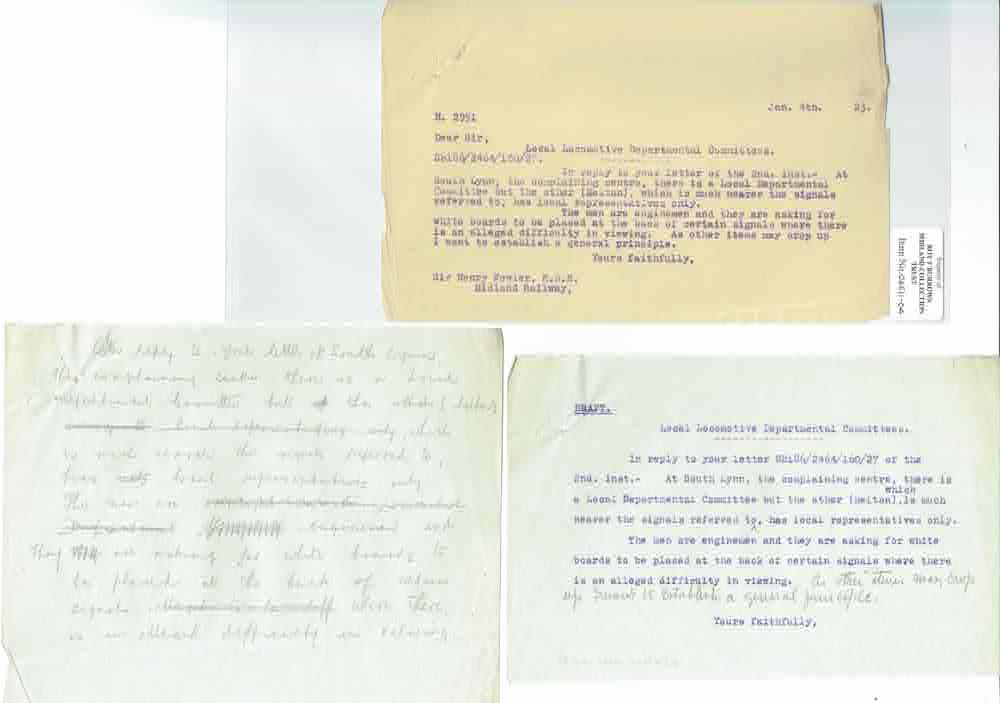 Jan. 4th. 23.
M. 2951
Dear Sir,
Local Locomotive Departmental Committees.
SR186/2464/160/27.
In reply to your letter of the 2nd. inst.- At
South Lynn, the complaining centre, there is a Local Departmental
Committee but the other (Melton), which is much nearer the signals
referred to, has local representatives only.
The men are enginemen and they are asking for
white boards to be placed at the back of certain signals where there
is an alleged difficulty in viewing. As other items may crop up
I want to establish a general principle.
Yours faithfully,
Sir Henry Fowler, K.B.E.
Midland Railway,
Property of
ROY F BURROWS
MIDLAND COLLECTION
TRUST
Item No.
In reply to your letter at South Lynn,
the complaining centre there is a Local
Departmental Committee but the other (
local representatives only which
is much nearer the signals referred to,
has local representatives only
The men are enginemen and
They are asking for white boards to
be placed at the back of certain
signals where there
is an alleged difficulty in viewing
DRAFT.
Local Locomotive Departmental Committees.
In reply to your letter SR186/2464/160/27 of the
2nd. inst.- At South Lynn, the complaining centre, there is
which
a Local Departmental Committee but the other (Melton). is much
nearer the signals referred to, has local representatives only.
The men are enginemen and they are asking for white
boards to be placed at the back of certain signals where there
is an alleged difficulty in viewing. As other items may crop
up I want to establish a general principle.
Yours faithfully,